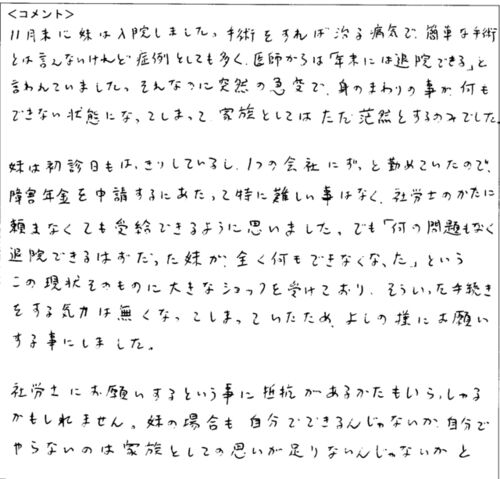 <コメント>
11月末に妹は入院しました。手術をすれば治る病気で、簡単な手術
とは言えないけれど症例としても多く、医師からは「年末には退院できる」と
言われていました。それなのに突然の急変で、身のまわりの事が何も
できない状態になってしまって、家族としてはただ茫然とするのみでした。
妹は初診日もはっきりしているし、1つの会社にずっと勤めていたので、
障害年金を申請するにあたって特に難しい事はなく、社労士のかたに
頼まなくても受給できるように思いました。でも「何の問題もなく
退院できるはずだった妹が、全く何もできなくなった」という
この現状そのものに大きなショックを受けており、そういった手続き
をする気力は無くなってしまっていたため、よしの様にお願い
する事にしました。
社労士にお願いするという事に抵抗があるかたもいらっしゃる
かもしれません。妹の場合も自分でできるんじゃないか、自分で
やらないのは家族としての思いが足りないんじゃないかと